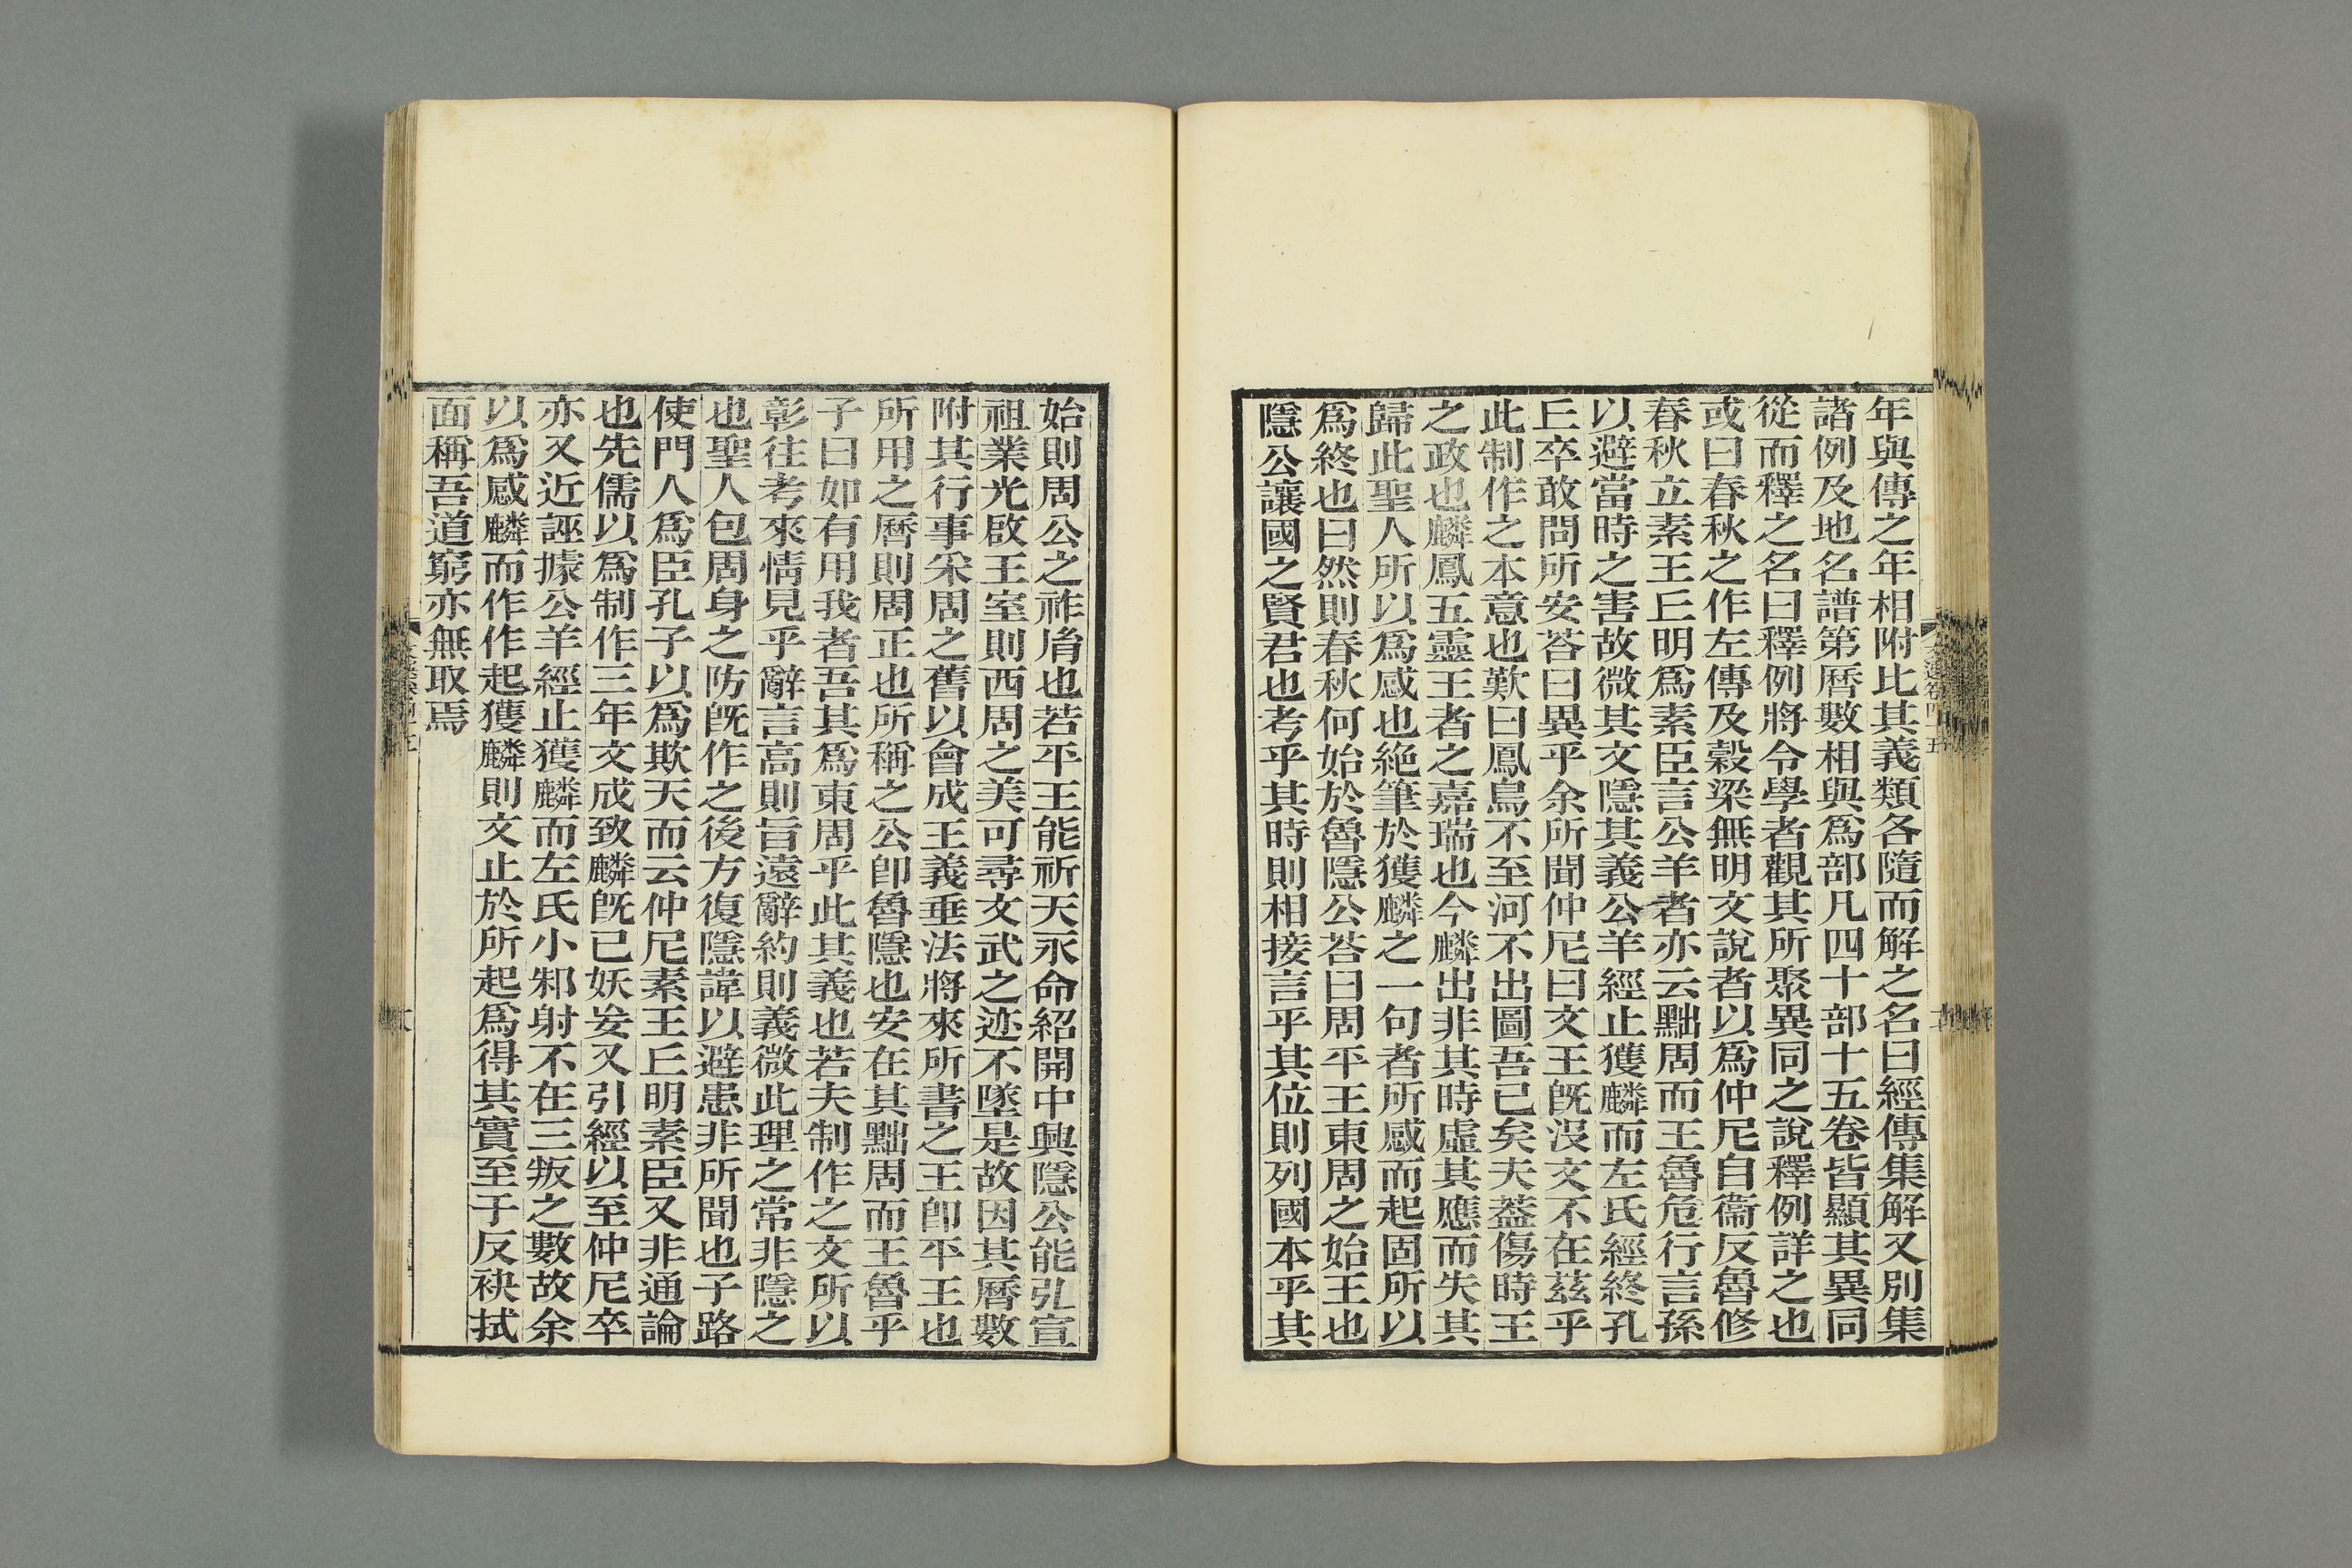 年與傳之年相附比其義類各隨而解之名曰經傳集解又別集
諸例及地名譜第曆數相與爲部凡四十部十五卷皆顯其異同
從而釋之名曰釋例將令學者觀其所聚異同之說釋例詳之也
或曰春秋之作左傳及穀梁無明文說者以爲仲尼自衞反魯修
春秋立素王丘明爲素臣言公羊者亦云黜周而王魯危行言孫
以避當時之害故微其文隱其義公羊經止獲麟而左氏經終孔
丘卒敢問所安荅曰異乎余所聞仲尼曰文王旣沒文不在茲乎
此制作之本意也歎曰鳳鳥不至河不出圖吾已矣夫蓋傷時王
之政也麟鳳五靈王者之嘉瑞也今麟出非其時虛其應而失其
歸此聖人所以爲感也絶筆於獲麟之一句者所感而起固所以
爲終也曰然則春秋何始於魯隱公荅曰周平王東周之始王也
隱公讓國之賢君也考乎其時則相接言乎其位則列國本乎其
始則周公之祚胤也若平王能祈天永命紹開中興隱公能弘宣
祖業光啟王室則西周之美可尋文武之迹不墜是故因其曆數
附其行事采周之舊以會成王義垂法將來所書之王卽平王也
所用之曆則周正也所稱之公卽魯隱也安在其黜周而王魯乎
子曰如有用我者吾其爲東周乎此其義也若夫制作之文所以
彰往考來情見乎辭言高則旨遠辭約則義微此理之常非隱之
也聖人包周身之防旣作之後方復隱諱以避患非所聞也子路
使門人爲臣孔子以爲欺天而云仲尼素王丘明素臣又非通論
也先儒以爲制作三年文成致麟旣已妖妄又引經以至仲尼卒
亦又近誣據公羊經止獲麟而左氏小邾射不在三叛之數故余
以爲感麟而作作起獲麟則文止於所起爲得其實至于反袂拭
面稱吾道窮亦無取焉